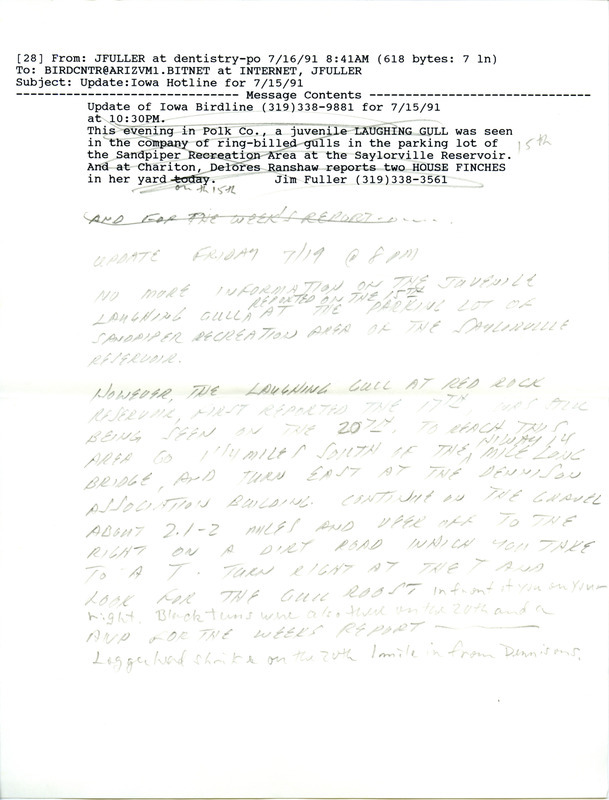 [28] From: JFULLER at dentistry-po 7/16/91 8:41AM (618 bytes: 7 ln)
To: BIRDCNTR@ARIZVM1.BITNET at INTERNET, JFULLER
Subject: Update:Iowa Hotline for 7/15/91
------------------------------- Message Contents -------------------------------
Update of Iowa Birdline (319)338-9881 for 7/15/91
at 10:30PM.
This evening in Polk Co., a juvenile LAUGHING GULL was seen
in the company of ring-billed gulls in the parking lot of 15th
the Sandpiper Recreation Area at the Saylorville Reservoir.
And at Chariton, Delores Ranshaw reports two HOUSE FINCHES
in her yard today. Jim Fuller (319)338-3561
on th 15th
AND FOR THE WEEK'S REPORT
UPDATE FRIDAY 7/19 @ 8 PM
NO MORE INFORMATION ON THE JUVENILE
REPORTED ON THE 15TH
LAUGHING GULL AT THE PARKING LOT OF
SANDPIPER RECREATION AREA OF THE SAYLORVILLE
RESERVOIR.
HOWEVER, THE LAUGHING GULL AT RED ROCK
RESERVOIR, FIRST REPORTED THE 17TH, WAS STILL
BEING SEEN ON THE 20TH. TO REACH THIS
HIWAY 14
AREA GO 1 1/4 MILES SOUTH OF THE MILE LONG
BRIDGE, AND TURN EAST AT THE DENNISON
ASSOCIATION BUILDING. CONTINUE ON THE GRAVEL
ABOUT 2.1-2 MILES AND VEER OFF TO THE
RIGHT ON A DIRT ROAD WHICH YOU TAKE
TO A T. TURN RIGHT AT THE T AND
LOOK FOR THE GULL ROOST in front of you on your
right. Black terns were also there on the 20th and a
AND FOR THE WEEKS REPORT
Loggerhead shrike on the 20th 1 mile in from Dennisons.